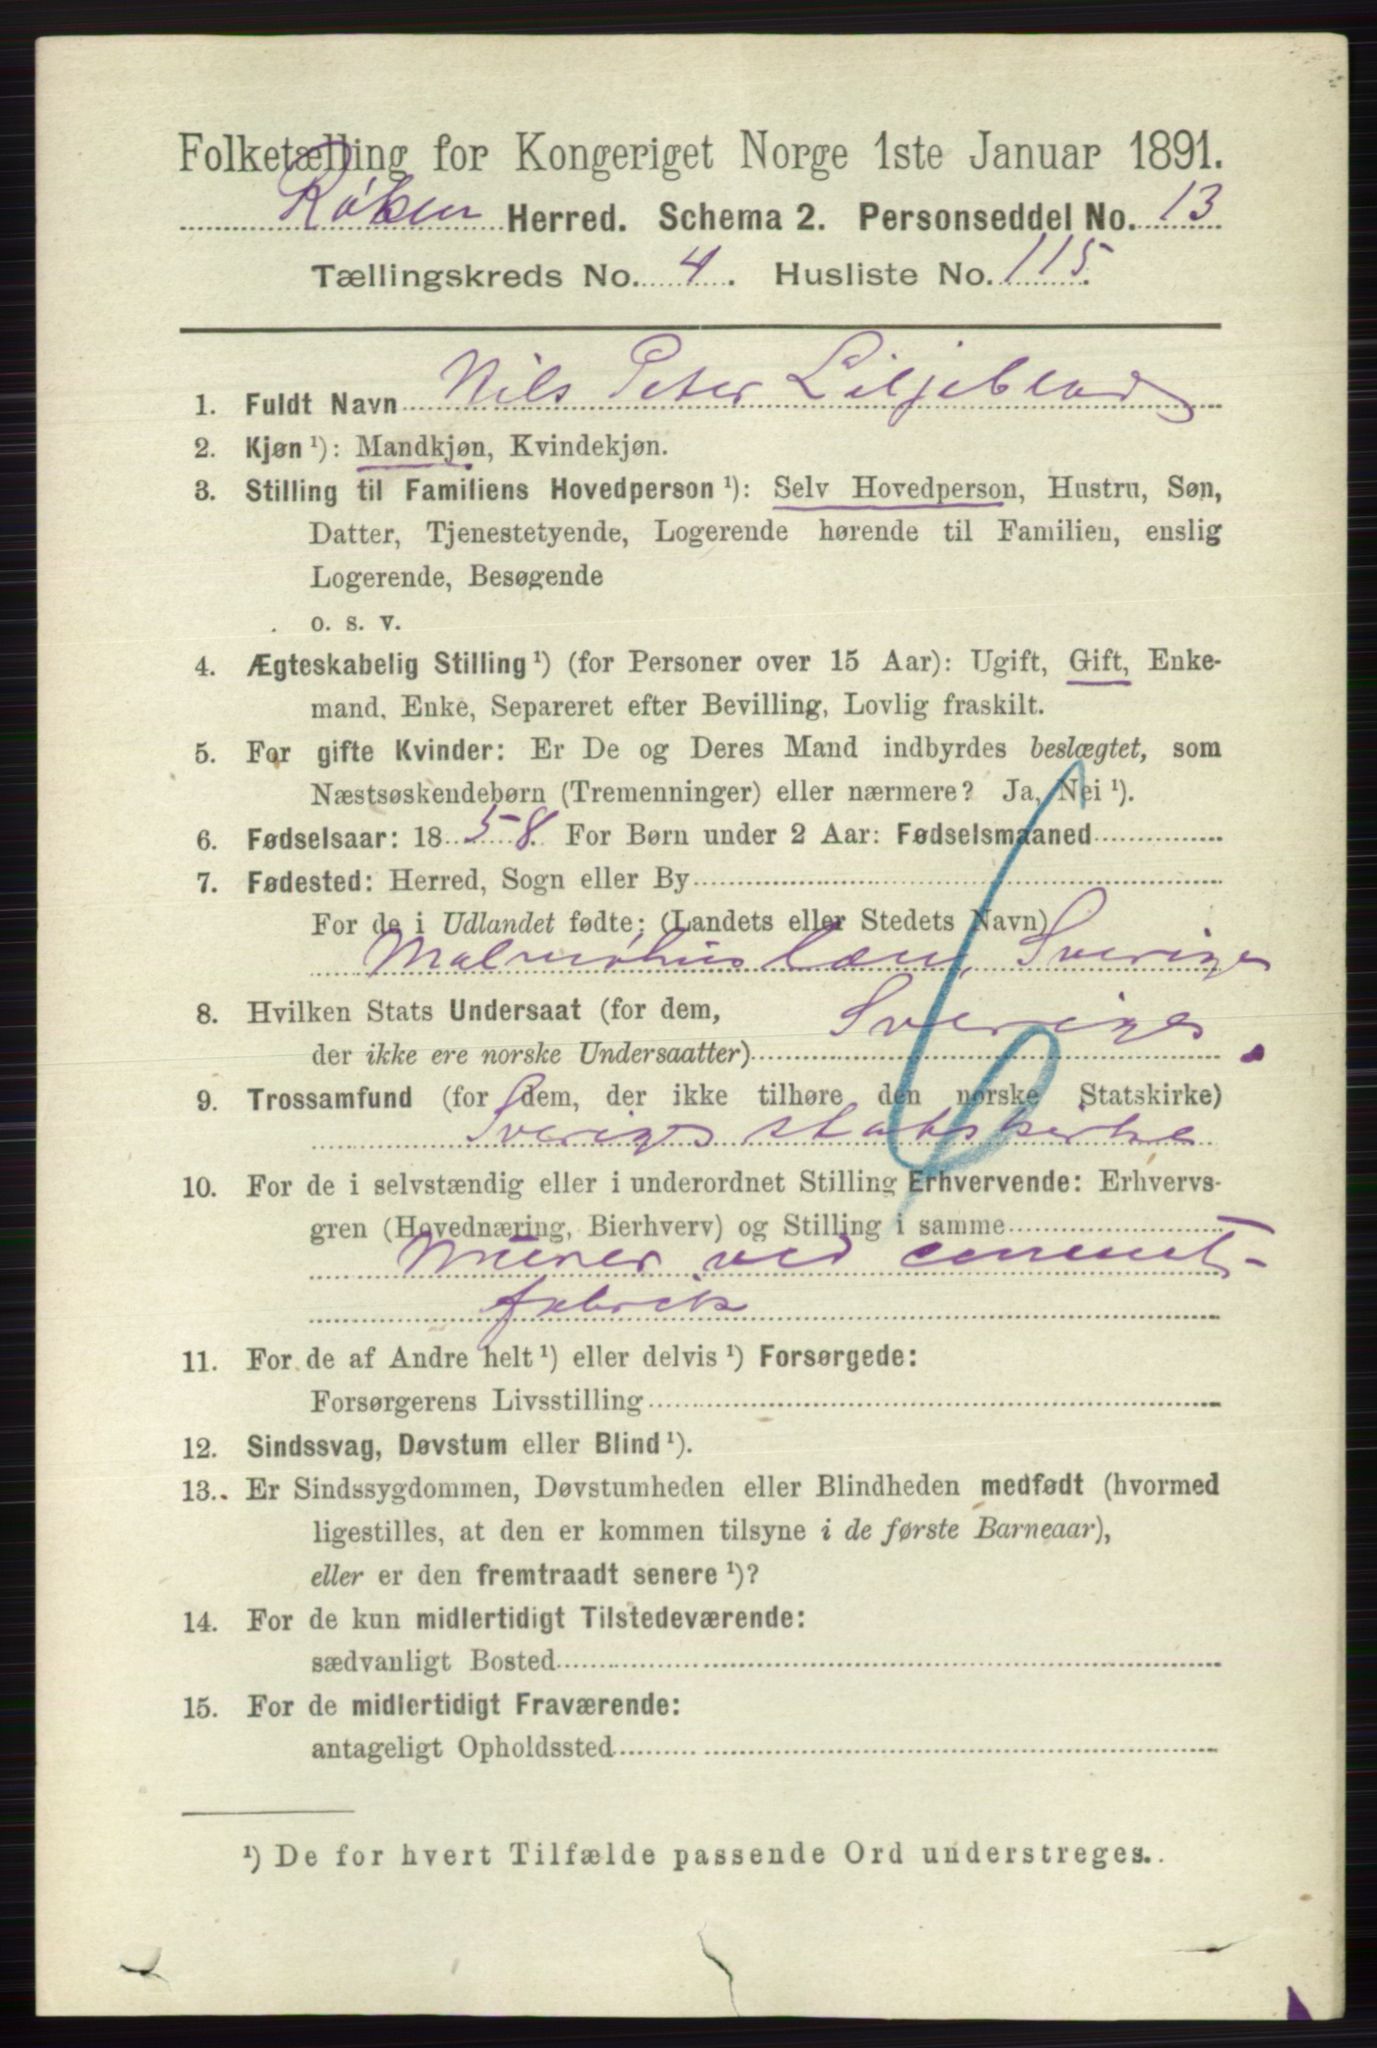 Folketælling for Kongeriget Norge 1ste Januar 1891.
Røken Herred. Schema 2. Personseddel No. 13
Tællingskreds No. 4. Husliste No. 115.
1. Fuldt Navn Nils Peter Liljeblad
2. Kjøn ¹): Mandkjøn, Kvindekjøn.
3. Stilling til Familiens Hovedperson ¹): Selv Hovedperson, Hustru, Søn,
Datter, Tjenestetyende, Logerende hørende til Familien, enslig
Logerende, Besøgende
o. s. v.
4. Ægteskabelig Stilling ¹) (for Personer over 15 Aar): Ugift, Gift, Enke-
mand, Enke, Separeret efter Bevilling, Lovlig fraskilt.
5. For gifte Kvinder: Er De og Deres Mand indbyrdes beslægtet, som
Næstsøskendebørn (Tremenninger) eller nærmere? Ja, Nei ¹).
6. Fødselsaar: 18 58. For Børn under 2 Aar: Fødselsmaaned
7. Fødested: Herred, Sogn eller By
For de i Udlandet fødte: (Landets eller Stedets Navn)
Malmøhus Læn, Sverige
8. Hvilken Stats Undersaat (for dem,
der ikke ere norske Undersaatter) Sveriges
9. Trossamfund (for dem, der ikke tilhøre den norske Statskirke)
Sveriges statskirke
10. For de i selvstændig eller i underordnet Stilling Erhvervende: Erhvervs-
gren (Hovednæring, Bierhverv) og Stilling i samme
Murer ved cement-
fabrik
11. For de af Andre helt ¹) eller delvis ¹) Forsørgede:
Forsørgerens Livsstilling
12. Sindssvag, Døvstum eller Blind ¹).
13. Er Sindssygdommen, Døvstumheden eller Blindheden medfødt (hvormed
ligestilles, at den er kommen tilsyne i de første Barneaar),
eller er den fremtraadt senere ¹)?
14. For de kun midlertidigt Tilstedeværende:
sædvanligt Bosted
15. For de midlertidigt Fraværende:
antageligt Opholdssted
¹) De for hvert Tilfælde passende Ord understreges.